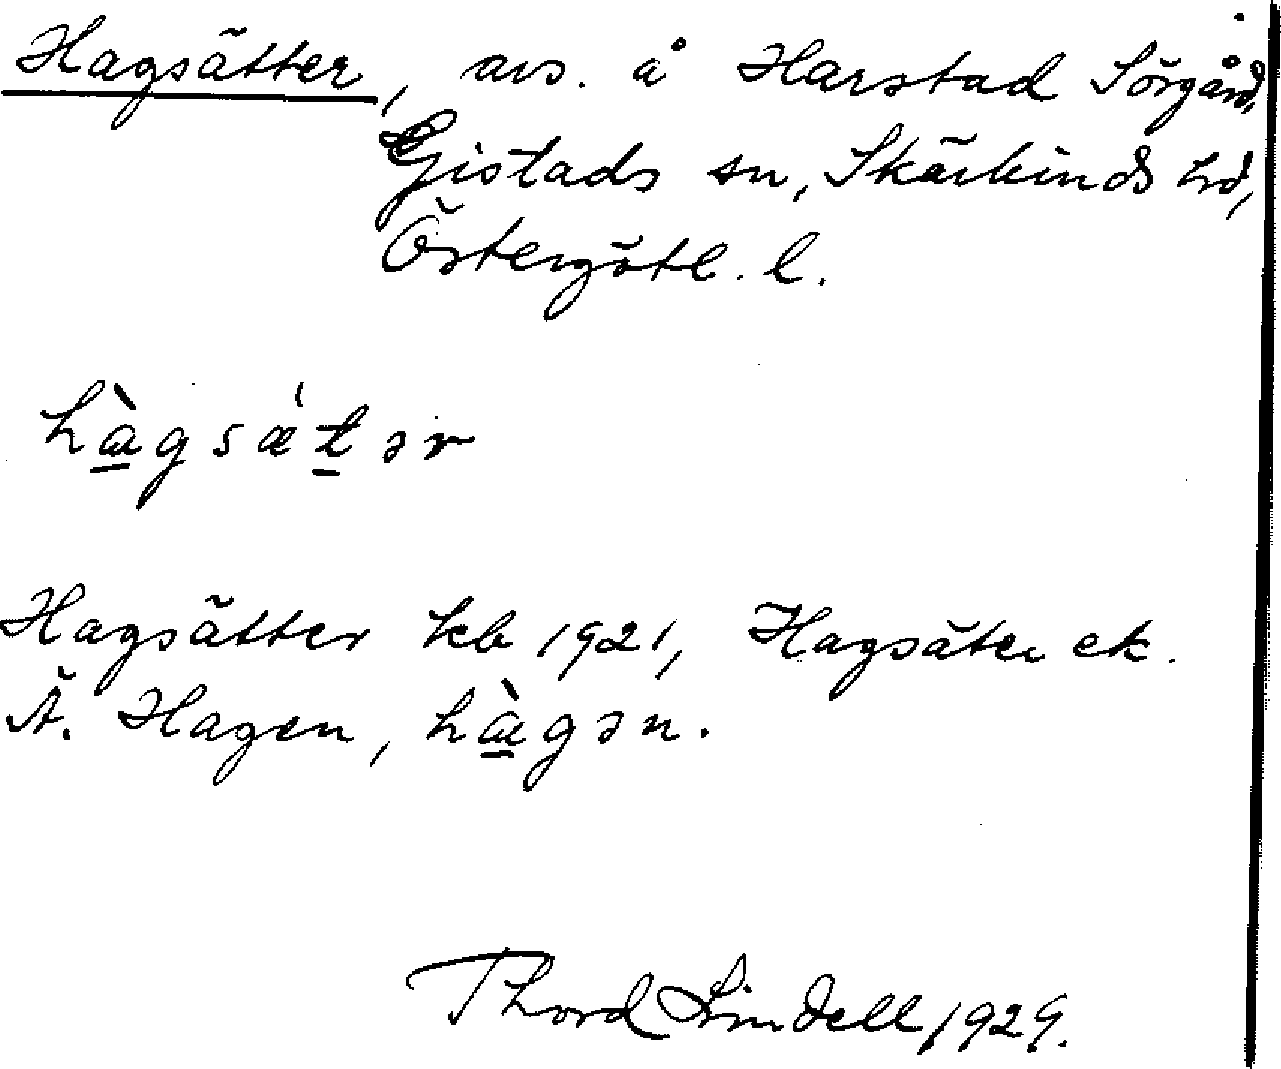 Hagsätter, avs. å Harstad Sörgård,
Gistads sn, Skärkinds hd,
Östergötl. l.
hàgsæ̍tər
Hagsätter kb 1921, Hagsäter ek.
Ä. Hagen, hàgən.
Thord Lindell 1929.